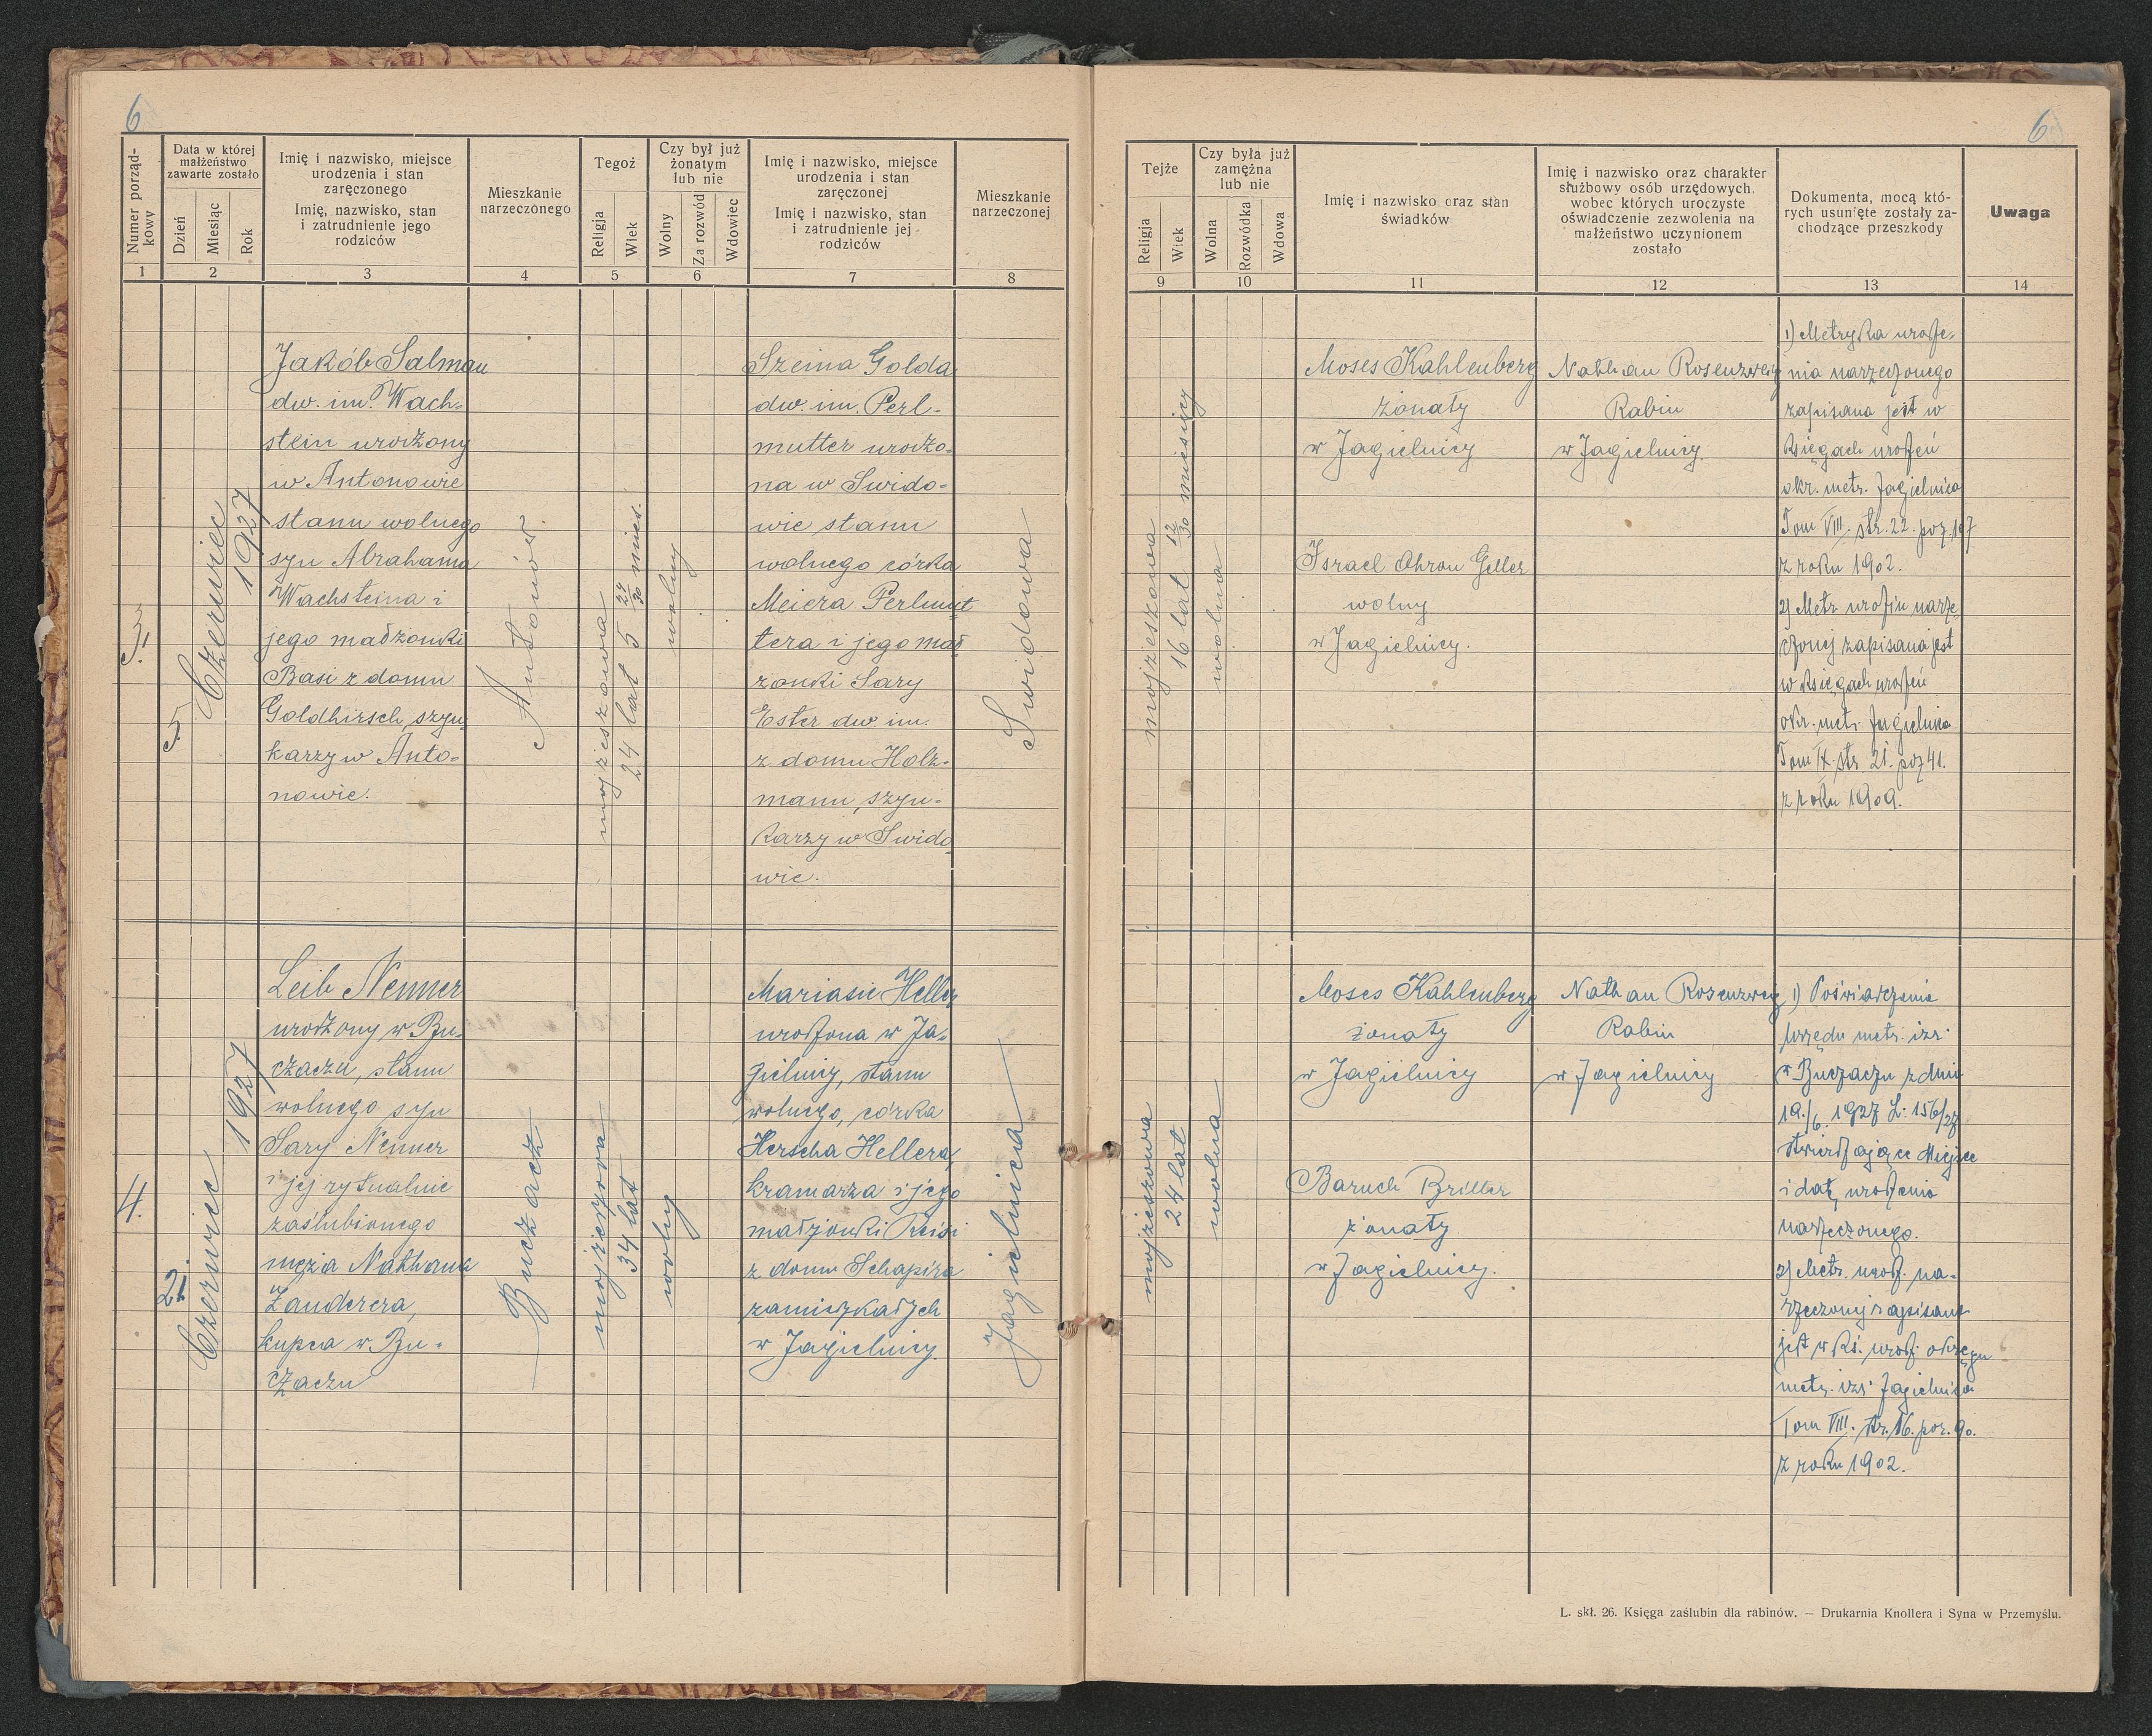 6
6
Numer porząd-
kowy
Data w której
małżeństwo
zawarte zostało
Dzień
Miesiąc
Rok
Imię i nazwisko, miejsce
urodzenia i stan
zaręczonego
Imię, nazwisko, stan
i zatrudnienie jego
rodziców
Mieszkanie
narzeczonego
Tegoż
Religja
Wiek
Czy był już
żonatym
lub nie
Wolny
Za rozwód
Wdowiec
Imię i nazwisko, miejsce
urodzenia i stan
zaręczonej
Imię i nazwisko, stan
i zatrudnienie jej
rodziców
Mieszkanie
narzeczonej
Tejże
Religja
Wiek
Czy była już
zamężna
lub nie
Wolna
Rozwódka
Wdowa
Imię i nazwisko oraz stan
świadków
Imię i nazwisko oraz charakter
służbowy osób urzędowych,
wobec których uroczyste
oświadczenie zezwolenia na
małżeństwo uczynionem
zostało
Dokumenta, mocą któ-
rych usunięte zostały za-
chodzące przeszkody
Uwaga
1 2 3 4 5 6 7 8 9 10 11 12 13 14
3.
5.
Czerwiec
1927
Jakób Salman
dw. im. Wach-
stein urodzony
w Antonowie
stanu wolnego
syn Abrahama
Wachsteina i
jego małżonki
Basi z domu
Goldhirsch, szyn-
karzy w Anto-
nowie.
Antonów.
mojżeszowa
24 lat 5 27/30 mies.
wolny
Szeina Golda
dw. im. Perl-
mutter urodzo-
na w Swido-
wie stanu
wolnego córka
Meiera Perlmut
tera i jego mał
żonki Sary
Ester dw. im.
z domu Holz-
mann, szyn-
karzy w Swido-
wie.
Swidowa
mojżeszowa
16 lat 12/30 miesięcy
wolna
Moses Kahlenberg
żonaty
w Jagielnicy
Israel Ahron Geller
wolny
w Jagielnicy.
Nathan Rosenzweig
Rabin
w Jagielnicy.
1) Metryka urodze-
nia narzeczonego
zapisana jest w
księgach urodzeń
okr. metr. Jagielnica
Tom VIII. str. 22. poz. 147
z roku 1902.
2) Metr. urodzin narze
czonej zapisana jest
w księgach urodzeń
okr. metr. Jagielnica
Tom IX. str. 21. poz 41.
z roku 1909.
4.
21.
Czerwiec
1927
Leib Nenner
urodzony w Bu-
czaczu, stanu
wolnego syn
Sary Nenner
i jej rytualnie
zaślubionego
męża Nathana
Zanderera,
kupca w Bu-
czaczu
Buczacz
mojżeszowa
34 lat
wolny
Mariasie Heller
urodzona w Ja-
gielnicy, stanu
wolnego, córka
Herscha Hellera,
kramarza i jego
małżonki Reisi
z domu Schapira
zamieszkałych
w Jagielnicy.
Jagielnica
mojżeszowa
24 lat
wolna
Moses Kahlenberg
żonaty
w Jagielnicy
Baruch Briller
żonaty
w Jagielnicy.
Nathan Rosenzweig
Rabin
w Jagielnicy
1) Poświadczenie
Urzędu metr. izr.
w Buczaczu z dnia
19./6. 1927 L: 156/27
stwierdzające Miejsce
i datę urodzenia
narzeczonego.
2) Metr. urodz. na-
rzeczonej zapisana
jest w ks. urodz. okręgu
metr. izr. Jagielnica
Tom VIII. str. 16. poz. 90.
z roku 1902.
L. skł. 26. Księga zaślubin dla rabinów. — Drukarnia Knollera i Syna w Przemyślu.